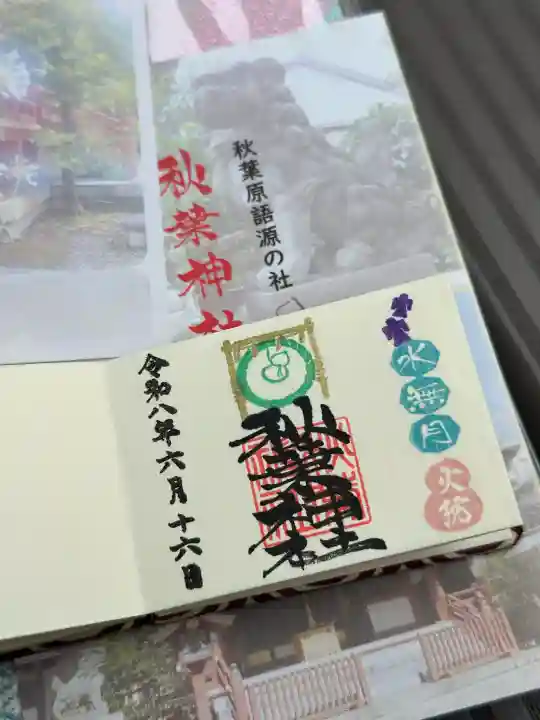 秋葉原語源の社
秋葉神社
水無月
火防
秋葉神社
令和八年六月十六日